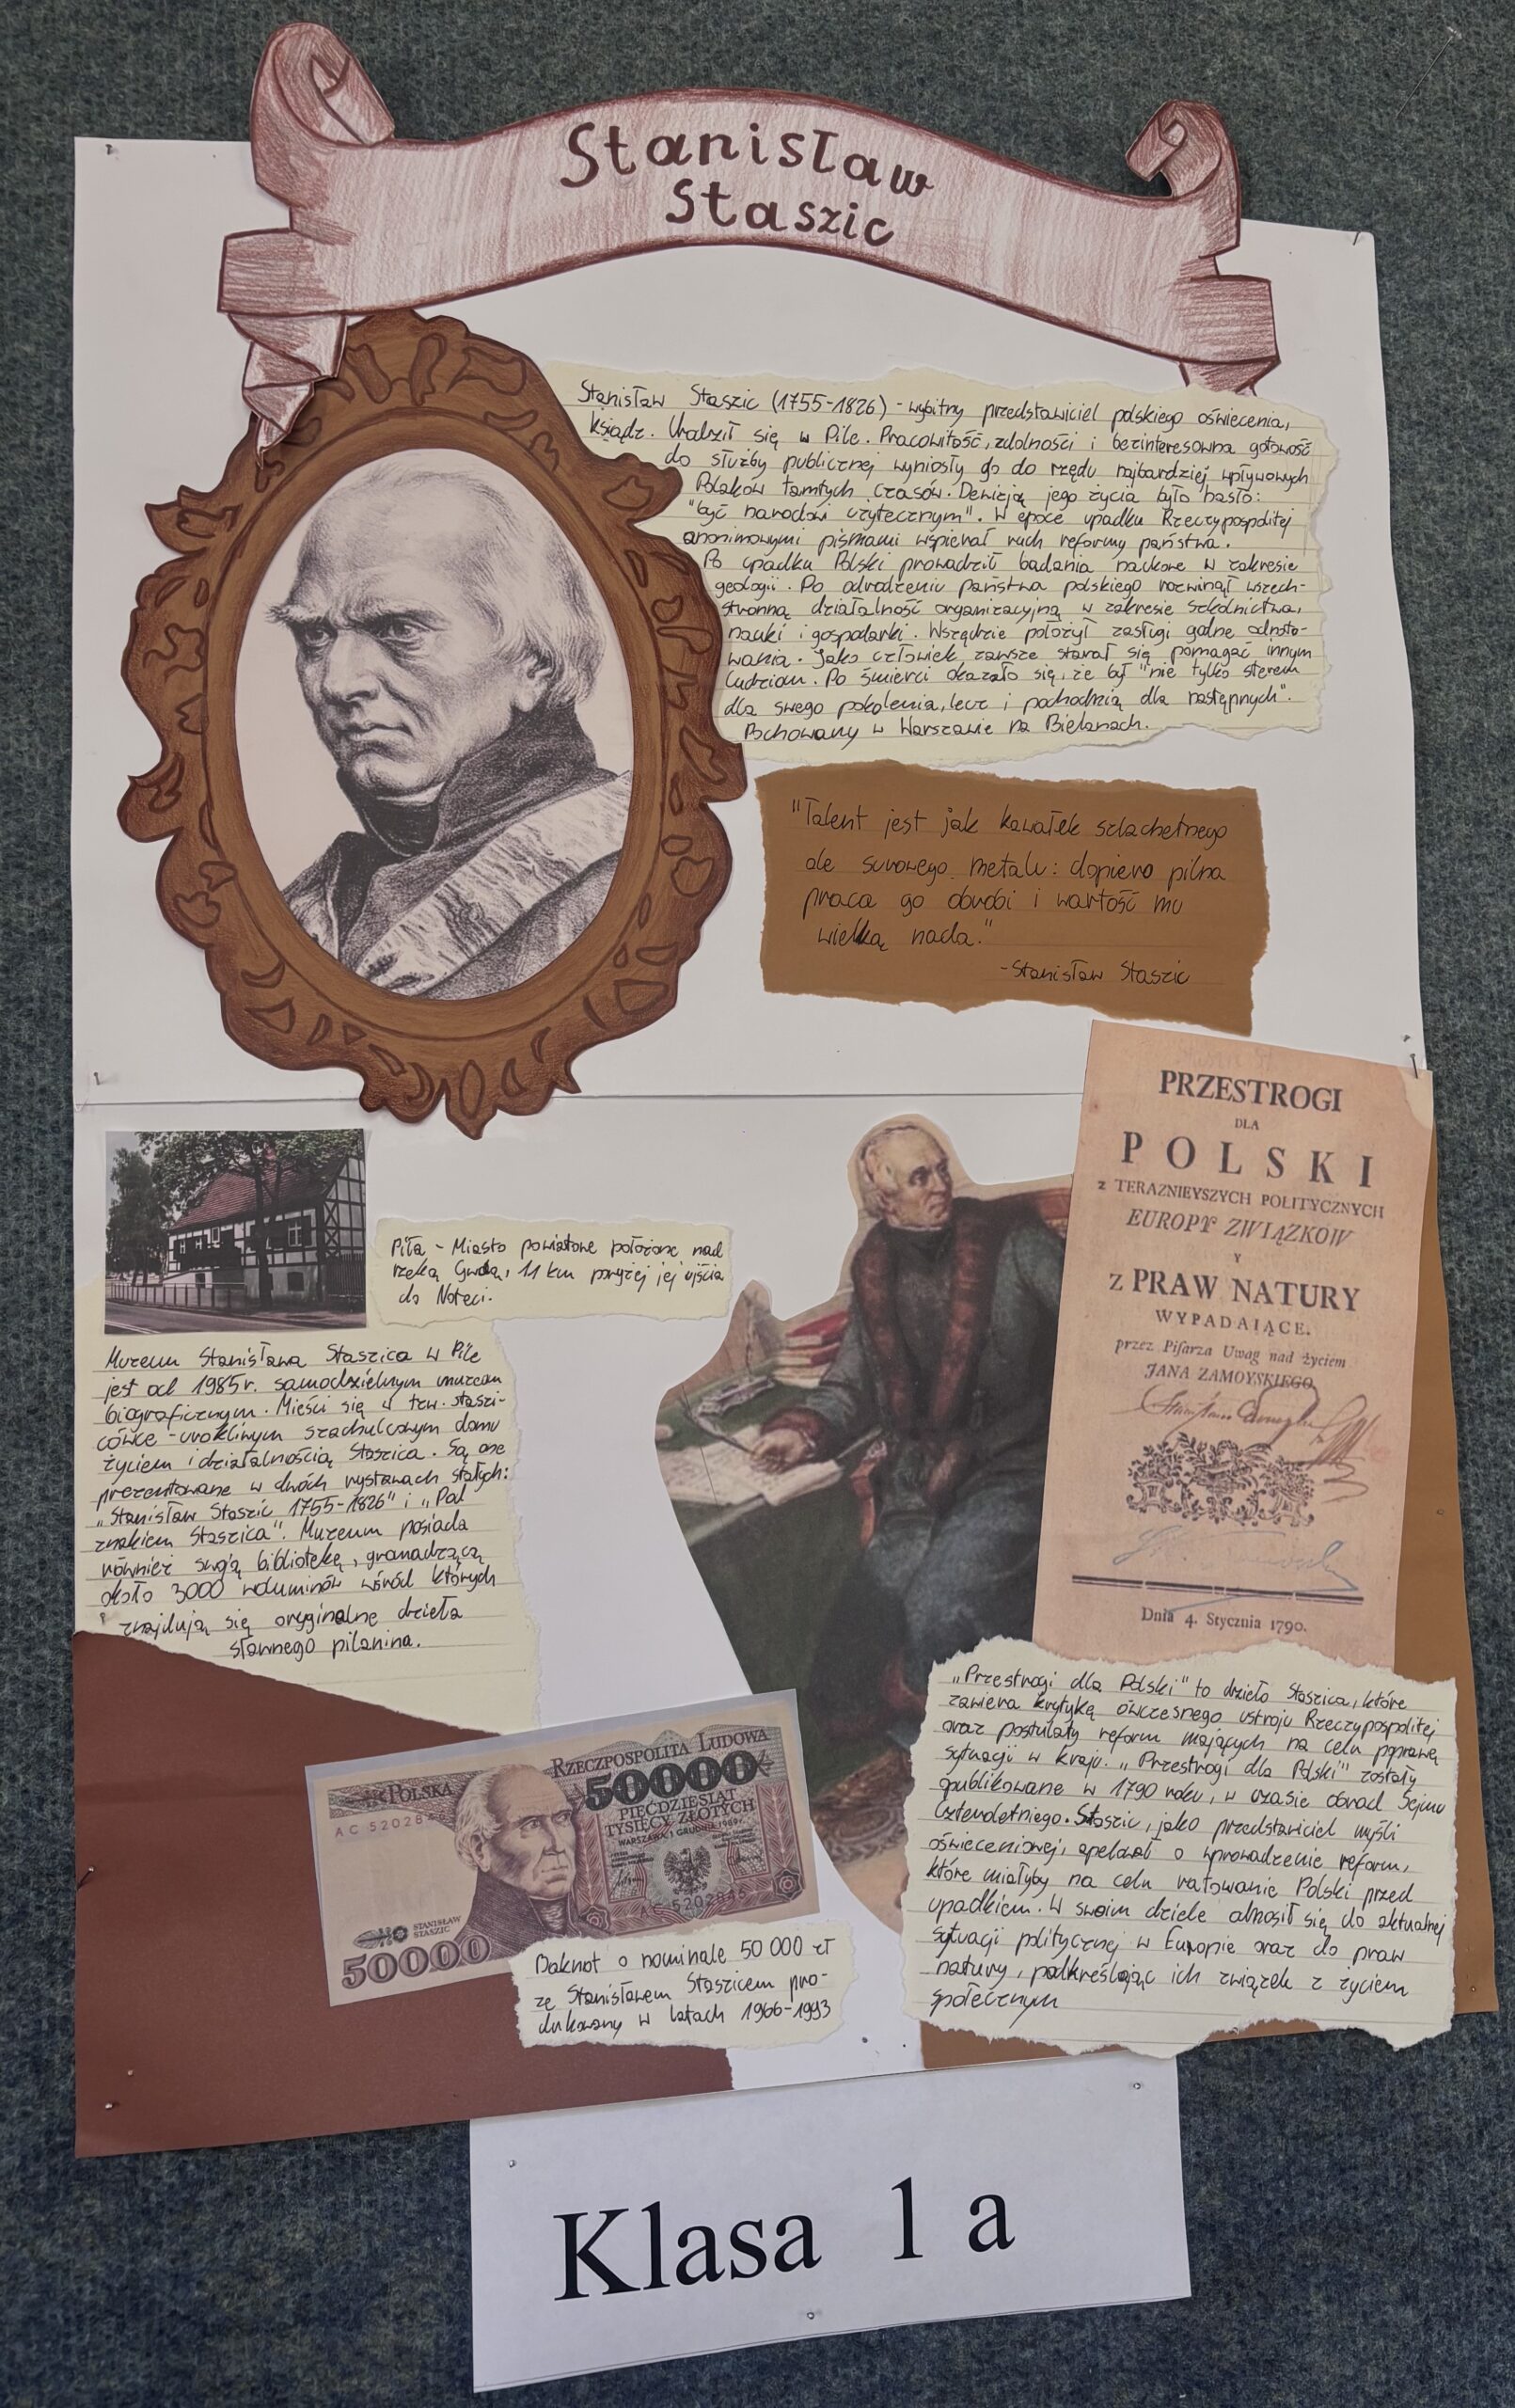 Stanisław
Staszic
Stanisław Staszic (1755-1826) - wybitny przedstawiciel polskiego oświecenia,
ksiądz. Urodził się w Pile. Pracowitość, zdolności i bezinteresowna gotowość
do służby publicznej wyniosły go do rzędu najbardziej wpływowych
Polaków tamtych czasów. Dewizją jego życia było hasło:
"być narodowi użytecznym". W epoce upadku Rzeczypospolitej
anonimowymi pismami wspierał ruch reformy państwa.
Po upadku Polski prowadził badania naukowe w zakresie
geologii. Po odrodzeniu państwa polskiego rozwinął wszech-
stronną działalność organizacyjną w zakresie szkolnictwa,
nauki i gospodarki. Wszędzie położył zasługi godne odnoto-
wania. Jako człowiek zawsze starał się pomagać innym
ludziom. Po śmierci okazało się, że był "nie tylko sterem
dla swego pokolenia, lecz i pochodnią dla następnych".
Pochowany w Warszawie na Bielanach.
"Talent jest jak kawałek szlachetnego
ale surowego metalu: dopiero pilna
praca go obrobi i wartość mu
wielką nada."
-Stanisław Staszic
PRZESTROGI
DLA
POLSKI
z TERAZNIEYSZYCH POLITYCZNYCH
EUROPY ZWIĄZKOW
Y
z PRAW NATURY
WYPADAIĄCE.
przez Pisarza Uwag nad życiem
JANA ZAMOYSKIEGO
Dnia 4. Stycznia 1790.
Piła - Miasto powiatowe położone nad
rzeką Gwdą, 11 km powyżej jej ujścia
do Noteci.
Muzeum Stanisława Staszica w Pile
jest od 1985r. samodzielnym muzeum
biograficznym. Mieści się w tzw. staszi-
cówce - urokliwym szachulcowym domu
życiem i działalnością Staszica. Są one
prezentowane w dwóch wystawach stałych:
„Stanisław Staszic 1755-1826" i „Pod
znakiem Staszica". Muzeum posiada
również swoją bibliotekę, gromadzącą
około 3000 woluminów wśród których
znajdują się oryginalne dzieła
sławnego pilanina.
POLSKA
RZECZPOSPOLITA LUDOWA
50000
PIĘĆDZIESIĄT
TYSIĘCY ZŁOTYCH
WARSZAWA, 1 GRUDNIA 1989r.
AC 5202845
STANISŁAW
STASZIC
50000
Baknot o nominale 50 000 zł
ze Stanisławem Staszicem pro-
dukowany w latach 1966-1993
„Przestrogi dla Polski" to dzieło Staszica, które
zawiera krytykę ówczesnego ustroju Rzeczypospolitej
oraz postulaty reform mających na celu poprawę
sytuacji w kraju. „Przestrogi dla Polski" zostały
opublikowane w 1790 roku, w czasie obrad Sejmu
Czteroletniego. Staszic, jako przedstawiciel myśli
oświeceniowej, apelował o wprowadzenie reform,
które miałyby na celu ratowanie Polski przed
upadkiem. W swoim dziele odnosił się do aktualnej
sytuacji politycznej w Europie oraz do praw
natury, podkreślając ich związek z życiem
społecznym
Klasa 1 a